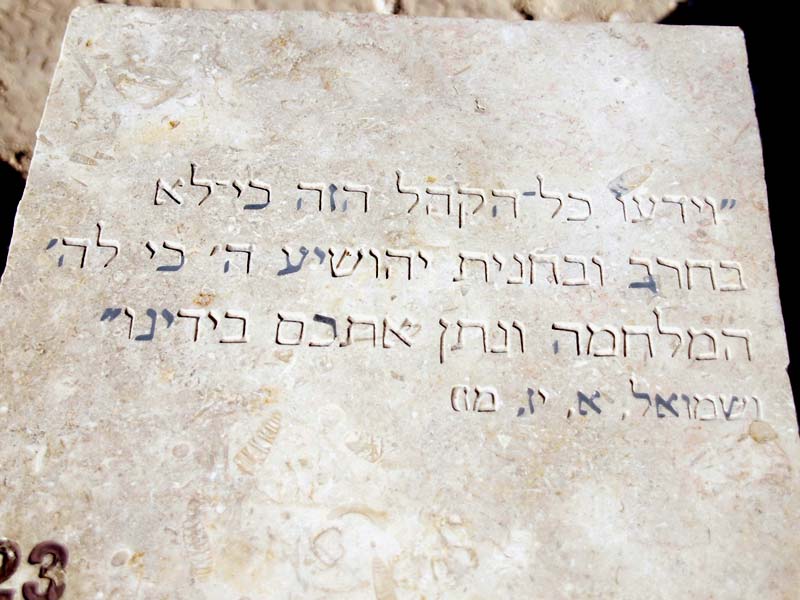 "וידעו כל־הקהל הזה כי־לא
בחרב ובחנית יהושיע ה' כי לה'
המלחמה ונתן אתכם בידינו"
(שמואל, א, יז, מז)
23